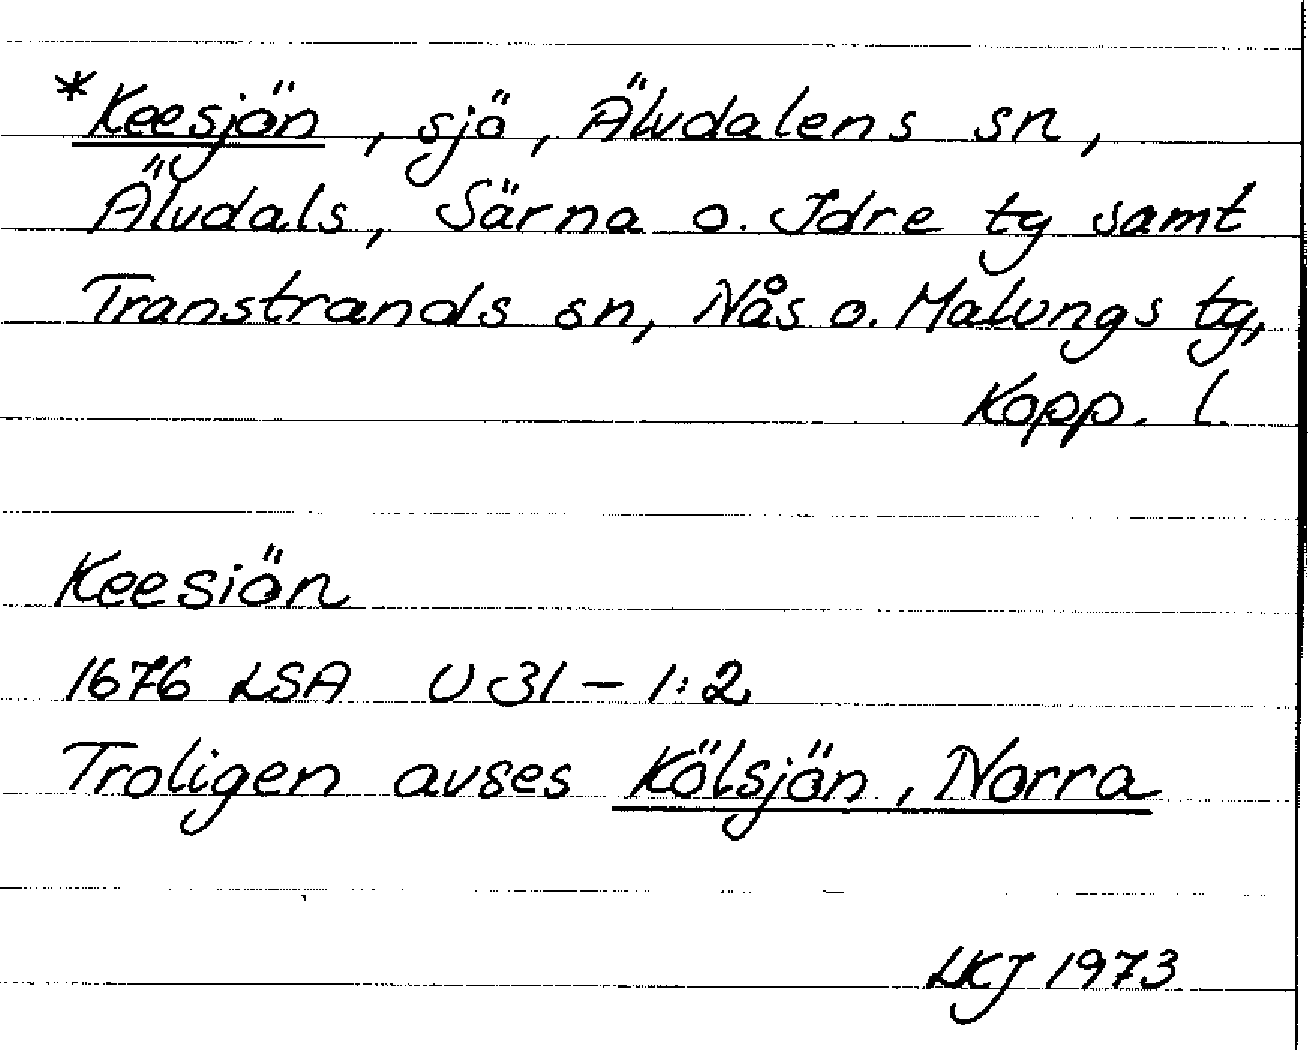 *Keesjön, sjö, Älvdalens sn,
Älvdals, Särna o. Idre tg samt
Transtrands sn, Nås o. Malungs tg,
Kopp. l.
Keesiön
1676 LSA U 31 - 1:2
Troligen avses Kölsjön, Norra
LKJ 1973